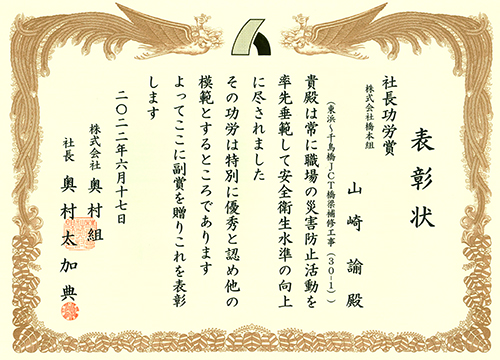 表彰状
社長功労賞
株式会社橋本組
山崎諭殿
(東浜～千鳥橋JCT橋梁補修工事(30-1))
貴殿は常に職場の災害防止活動を
率先垂範して安全衛生水準の向上
に尽されました
その功労は特別に優秀と認め他の
模範とするところであります
よってここに副賞を贈りこれを表彰
します
二〇二二年六月十七日
株式会社奥村組
社長奥村太加典